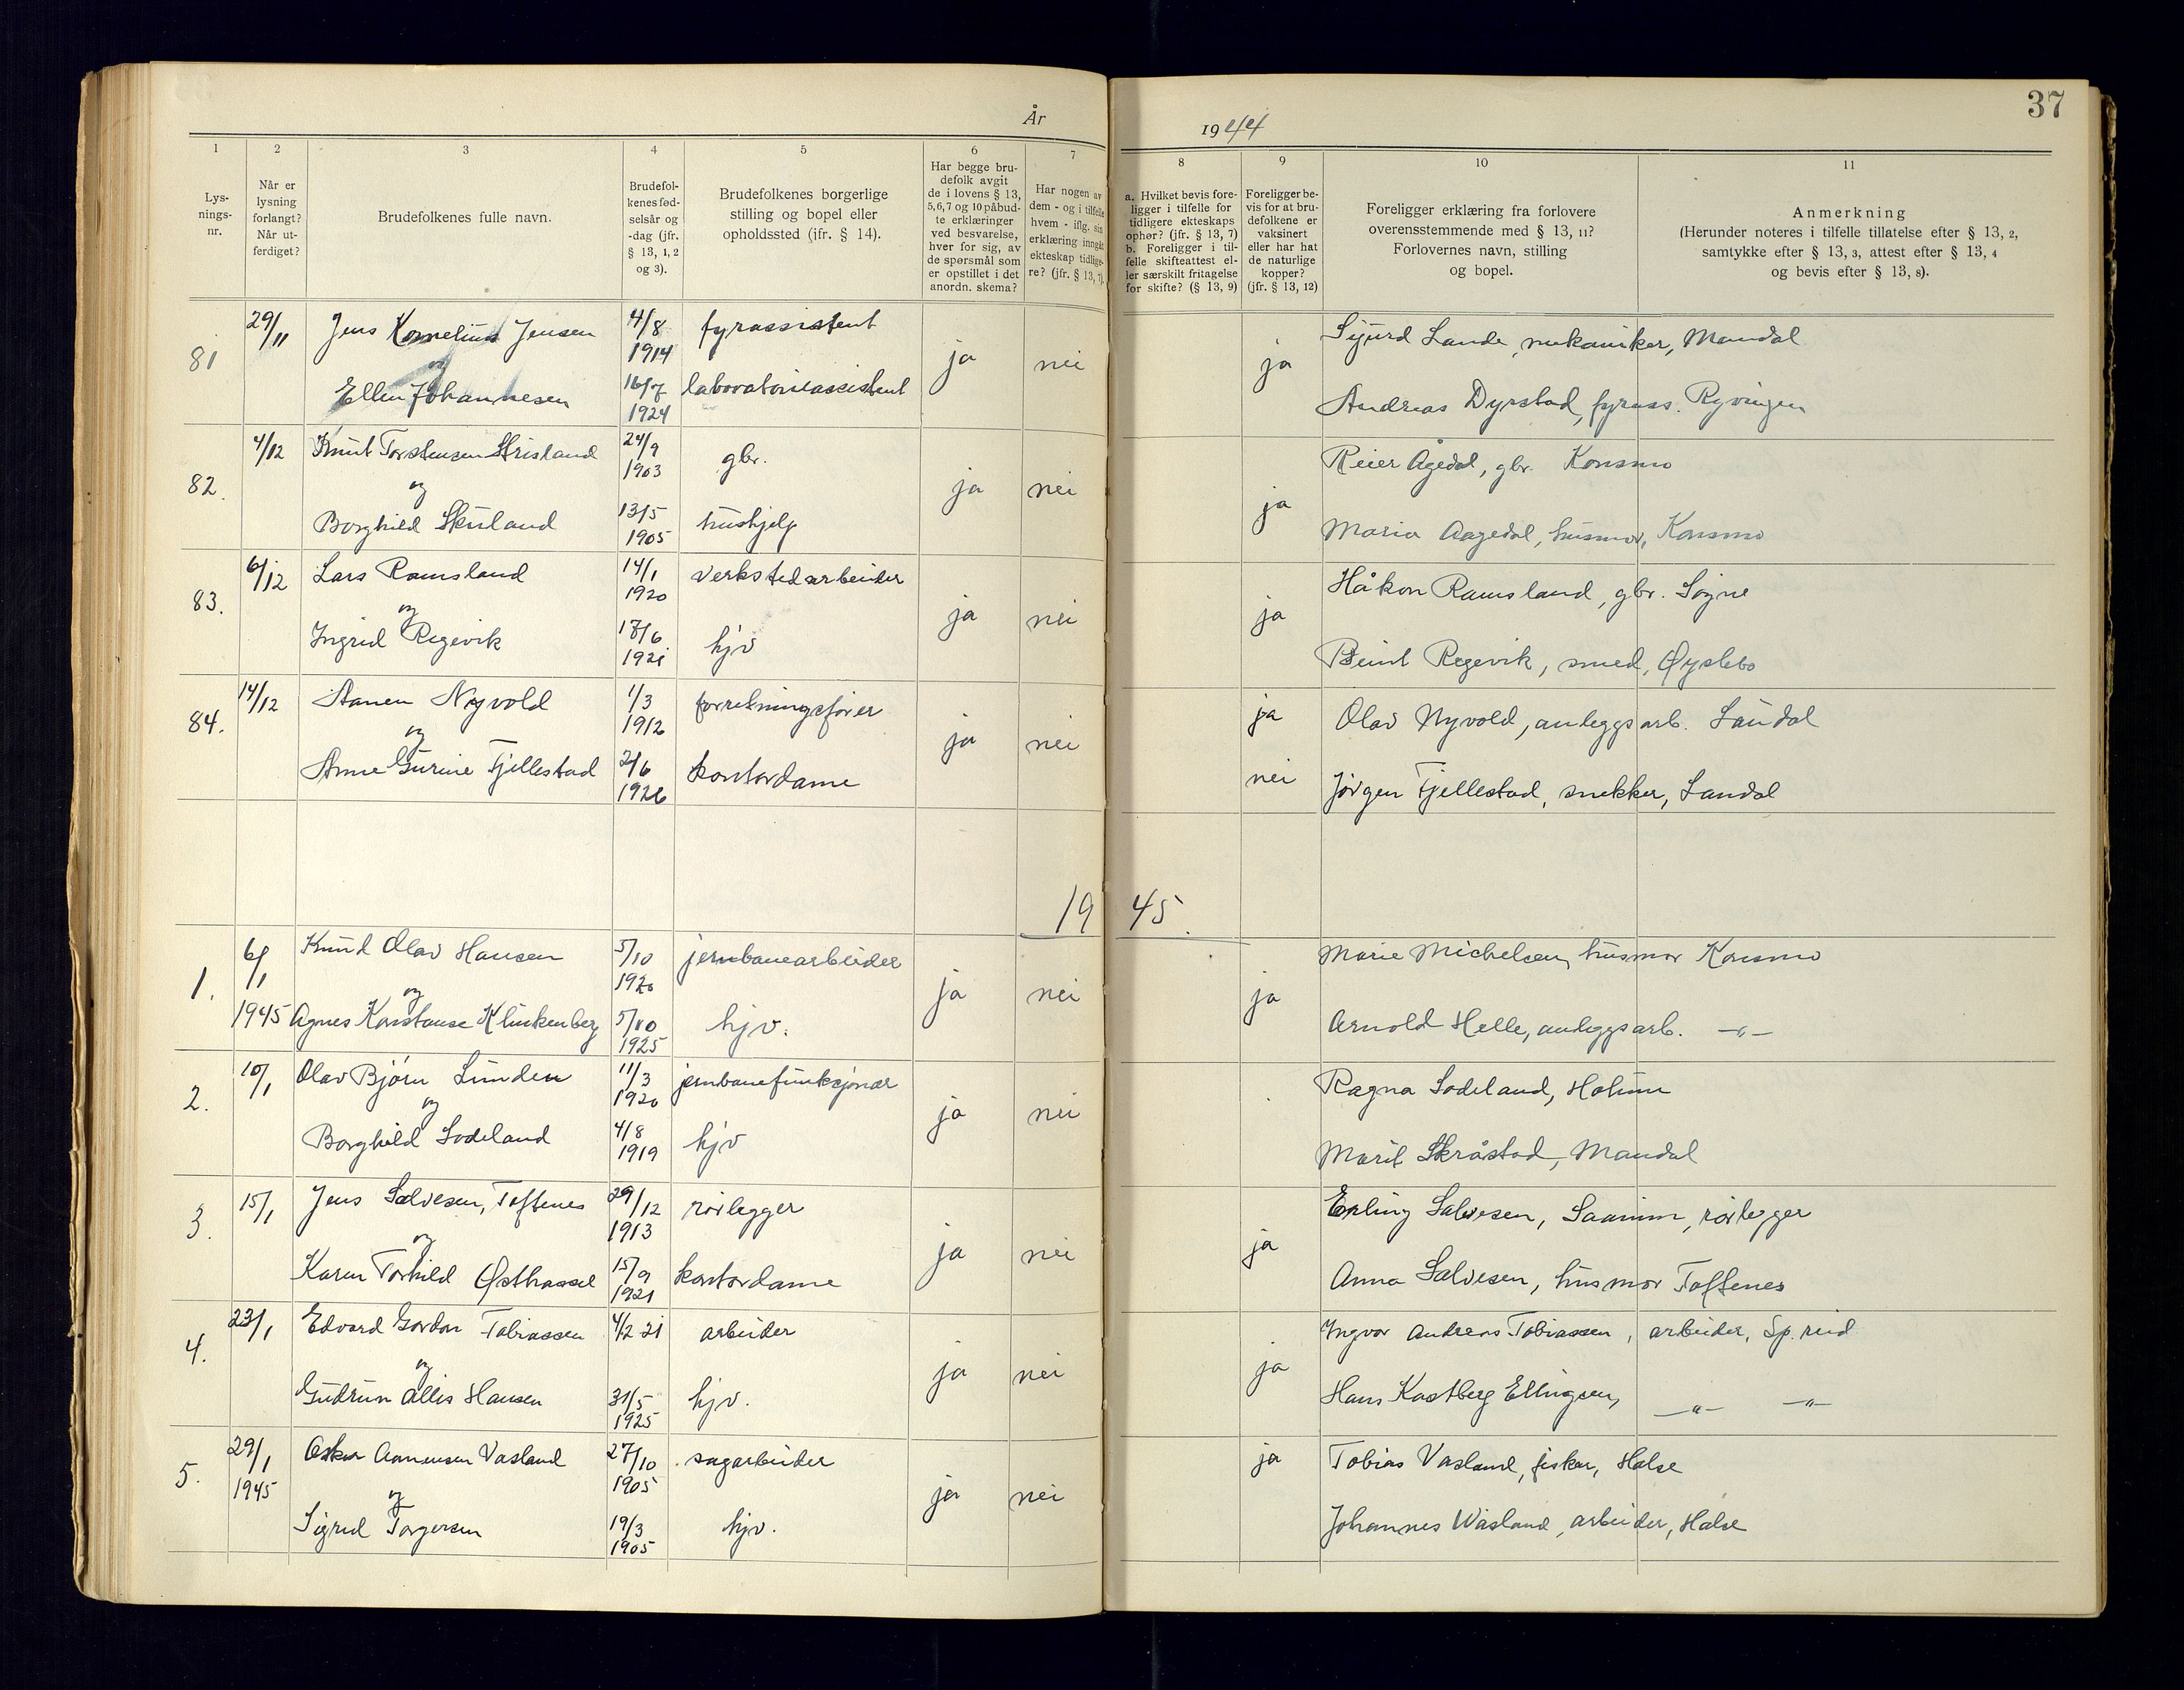 År 1944
37
1 2 3 4 5 6 7 8 9 10 11
Lys-
nings-
nr.
Når er
lysning
forlangt?
Når ut-
ferdiget?
Brudefolkenes fulle navn.
Brudefol-
kenes fød-
selsår og
-dag (jfr.
§ 13, 1, 2
og 3).
Brudefolkenes borgerlige
stilling og bopel eller
opholdssted (jfr. § 14).
Har begge bru-
defolk avgit
de i lovens § 13,
5,6,7 og 10 påbud-
te erklæringer
ved besvarelse,
hver for sig, av
de spørsmål som
er opstillet i det
anordn. skema?
Har nogen av
dem - og i tilfelle
hvem - iflg. sin
erklæring inngått
ekteskap tidlige-
re? (jfr. § 13, 7).
a. Hvilket bevis fore-
ligger i tilfelle for
tidligere ekteskaps
ophør? (jfr. § 13, 7)
b. Foreligger i til-
felle skifteattest el-
ler særskilt fritagelse
for skifte? (§ 13, 9)
Foreligger be-
vis for at bru-
defolkene er
vaksinert
eller har hat
de naturlige
kopper?
(jfr. § 13, 12)
Foreligger erklæring fra forlovere
overensstemmende med § 13, 11?
Forlovernes navn, stilling
og bopel.
Anmerkning
(Herunder noteres i tilfelle tillatelse efter § 13, 2,
samtykke efter § 13, 3, attest efter § 13, 4
og bevis efter § 13, 8).
81 29/11 Jens Kornelius Jensen 4/8 1914 fyrassistent
og ja nei ja
Ellen Johannesen 16/7 1924 laboratorieassistent
Sigurd Lande, mekaniker, Mandal
Andreas Dyrstad, fyrass. Ryvingen
82. 4/12 Knut Torstensen Skrisland 24/9 1903 gbr.
og ja nei ja
Borghild Skuland 13/5 1905 hushjelp
Reier Ågedal, gbr. Konsmo
Maria Aagedal, husmor, Konsmo
83. 6/12 Lars Ramsland 14/1 1920 verkstedarbeider
og ja nei ja
Ingrid Regevik 17/6 1921 hjv
Håkon Ramsland, gbr. Søgne
Beint Regevik, smed, Øyslebø
84. 14/12 Aanen Nyvold 1/3 1912 forretningsfører
og ja nei
Anne Gurine Fjellestad 2/6 1926 kontordame
ja Olav Nyvold, anleggsarb. Laudal
nei Jørgen Fjellestad, snekker, Laudal
1945.
1. 6/1 1945 Knud Olav Hansen 5/10 1920 jernbanearbeider
og ja nei ja
Agnes Konstanse Klinkenberg 5/10 1925 hjv.
Marie Michelsen, husmor Konsmo
Arnold Helle, anleggsarb. —"—
2. 10/1 Olav Bjørn Linden 11/3 1920 jernbanefunksjonær
og ja nei
Borghild Sodeland 4/8 1919 hjv
Ragna Sodeland, Holum
Marit Skråstad, Mandal
3. 15/1 Jens Salvesen, Toftenes 29/12 1913 rørlegger
og ja nei ja
Karen Torhild Østhassel 15/9 1921 kontordame
Erling Salvesen, Saanum, rørlegger
Anna Salvesen, husmor Toftenes
4. 23/1 Edvard Gordon Tobiassen 4/2 21 arbeider
og ja nei ja
Gudrun Allis Hansen 31/5 1925 hjv.
Ingvar Andreas Tobiassen, arbeider, Sp.reid
Hans Kastberg Ellingsen, —"— —"—
5. 29/1 1945 Oskar Aanensen Vasland 27/10 1905 sagarbeider
og ja nei ja
Sigrid Torgersen 19/3 1905 hjv.
Tobias Vasland, fisker, Halse
Johannes Wasland, arbeider, Halse